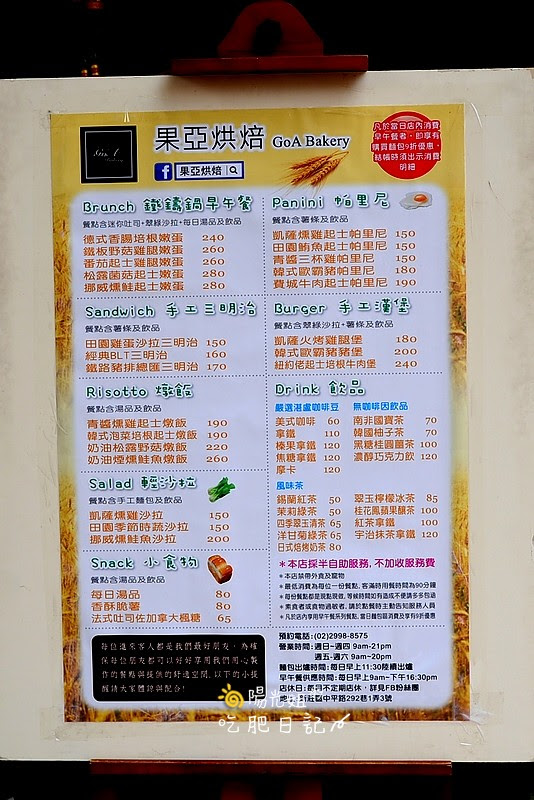 果亞烘焙 GoA Bakery
果亞烘焙
凡於當日店內消費
早午餐者，即享有
購買麵包9折優惠，
結帳時須出示消費
明細
Brunch 鐵鑄鍋早午餐
餐點含迷你吐司+翠綠沙拉+每日湯品及飲品
德式香腸培根嫩蛋 240
鐵板野菇雞腿嫩蛋 260
番茄起士雞腿嫩蛋 260
松露菌菇起士嫩蛋 280
挪威燻鮭起士嫩蛋 280
Panini 帕里尼
餐點含薯條及飲品
凱薩燻雞起士帕里尼 150
田園鮪魚起士帕里尼 150
青醬三杯雞帕里尼 150
韓式歐霸豬帕里尼 180
費城牛肉起士帕里尼 190
Sandwich 手工三明治
餐點含薯條及飲品
田園雞蛋沙拉三明治 150
經典BLT三明治 160
鐵路豬排總匯三明治 170
Burger 手工漢堡
餐點含翠綠沙拉+薯條及飲品
凱薩火烤雞腿堡 180
韓式歐霸豬豬堡 200
紐約佬起士培根牛肉堡 240
Risotto 燉飯
餐點含湯品及飲品
青醬燻雞起士燉飯 190
韓式泡菜培根起士燉飯 190
奶油松露野菇燉飯 220
奶油煙燻鮭魚燉飯 260
Drink 飲品
嚴選湛盧咖啡豆
美式咖啡 60
拿鐵 110
榛果拿鐵 120
焦糖拿鐵 120
摩卡 120
無咖啡因飲品
南非國寶茶 70
韓國柚子茶 70
黑糖桂圓薑茶 100
濃醇巧克力飲 120
風味茶
錫蘭紅茶 50
茉莉綠茶 50
四季翠玉清茶 65
洋甘菊綠茶 65
日式焙烤奶茶 80
翠玉檸檬冰茶 85
桂花鳳蘋果釀茶 100
紅茶拿鐵 100
宇治抹茶拿鐵 120
Salad 輕沙拉
餐點含手工麵包及飲品
凱薩燻雞沙拉 150
田園季節時蔬沙拉 150
挪威燻鮭魚沙拉 200
Snack 小食物
餐點含湯品及飲品
每日湯品 80
香酥脆薯 80
法式吐司佐加拿大楓糖 65
*本店採半自助服務，不加收服務費
*本店禁帶外食及寵物
*最低消費為每位一份餐點，客滿時用餐時間為90分鐘
*每份餐點都是現點現做，等候時間如有造成不便請多多包涵
*素食者或食物過敏者，請於點餐時主動告知服務人員
*凡於店內享用早午餐系列餐點，當日麵包區消費及享有9折優惠
每位進來客人都是我們最好朋友，為確
保每位朋友都可以好好享用我們用心製
作的餐點與提供的舒適空間，以下的小提
醒請大家體諒與配合!
預約電話:(02)2998-8575
營業時間:週日~週四 9am-21pm
週五-週六 9am~20pm
麵包出爐時間:每日早上11:30陸續出爐
早午餐供應時間:每日早上9am~下午16:30pm
店休日:每月不定期店休，詳見FB粉絲團
新莊區中平路292巷1弄3號
陽光姐
吃肥日記